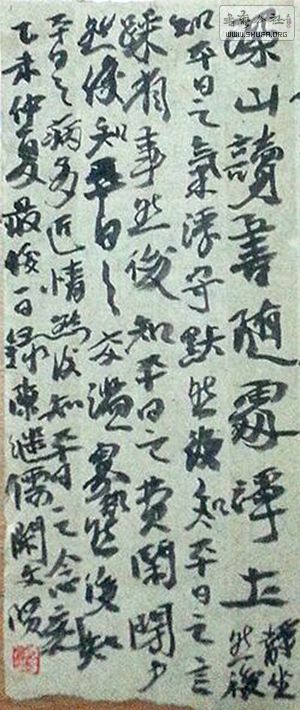 深山讀書隨處淨土靜坐
然後
知平日之氣浮守默然後知平日之言
躁省事然後知平日之費閑閉戶
然後知平日之交濫寡欲然後知
平日之病多近情然後知平日之念刻
乙未仲夏最後一日錄陳繼儒閑文
www.SHUFA.ORG